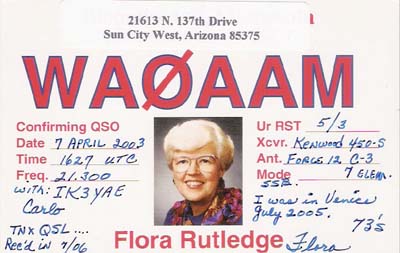 21613 N. 137th Drive
Sun City West, Arizona 85375
WAØAAM
Confirming QSO
Date 7 APRIL 2003
Time 1627 UTC
Freq. 21.300
WITH: IK3YAE
Carlo
TNX QSL....
Rec'd in 7/06
Ur RST 5/3
Xcvr. KENWOOD 450-S
Ant. FORCE 12 C-3
7 ELEM.
Mode SSB.
I was in Venice
July 2005.
73's
Flora Rutledge Flora